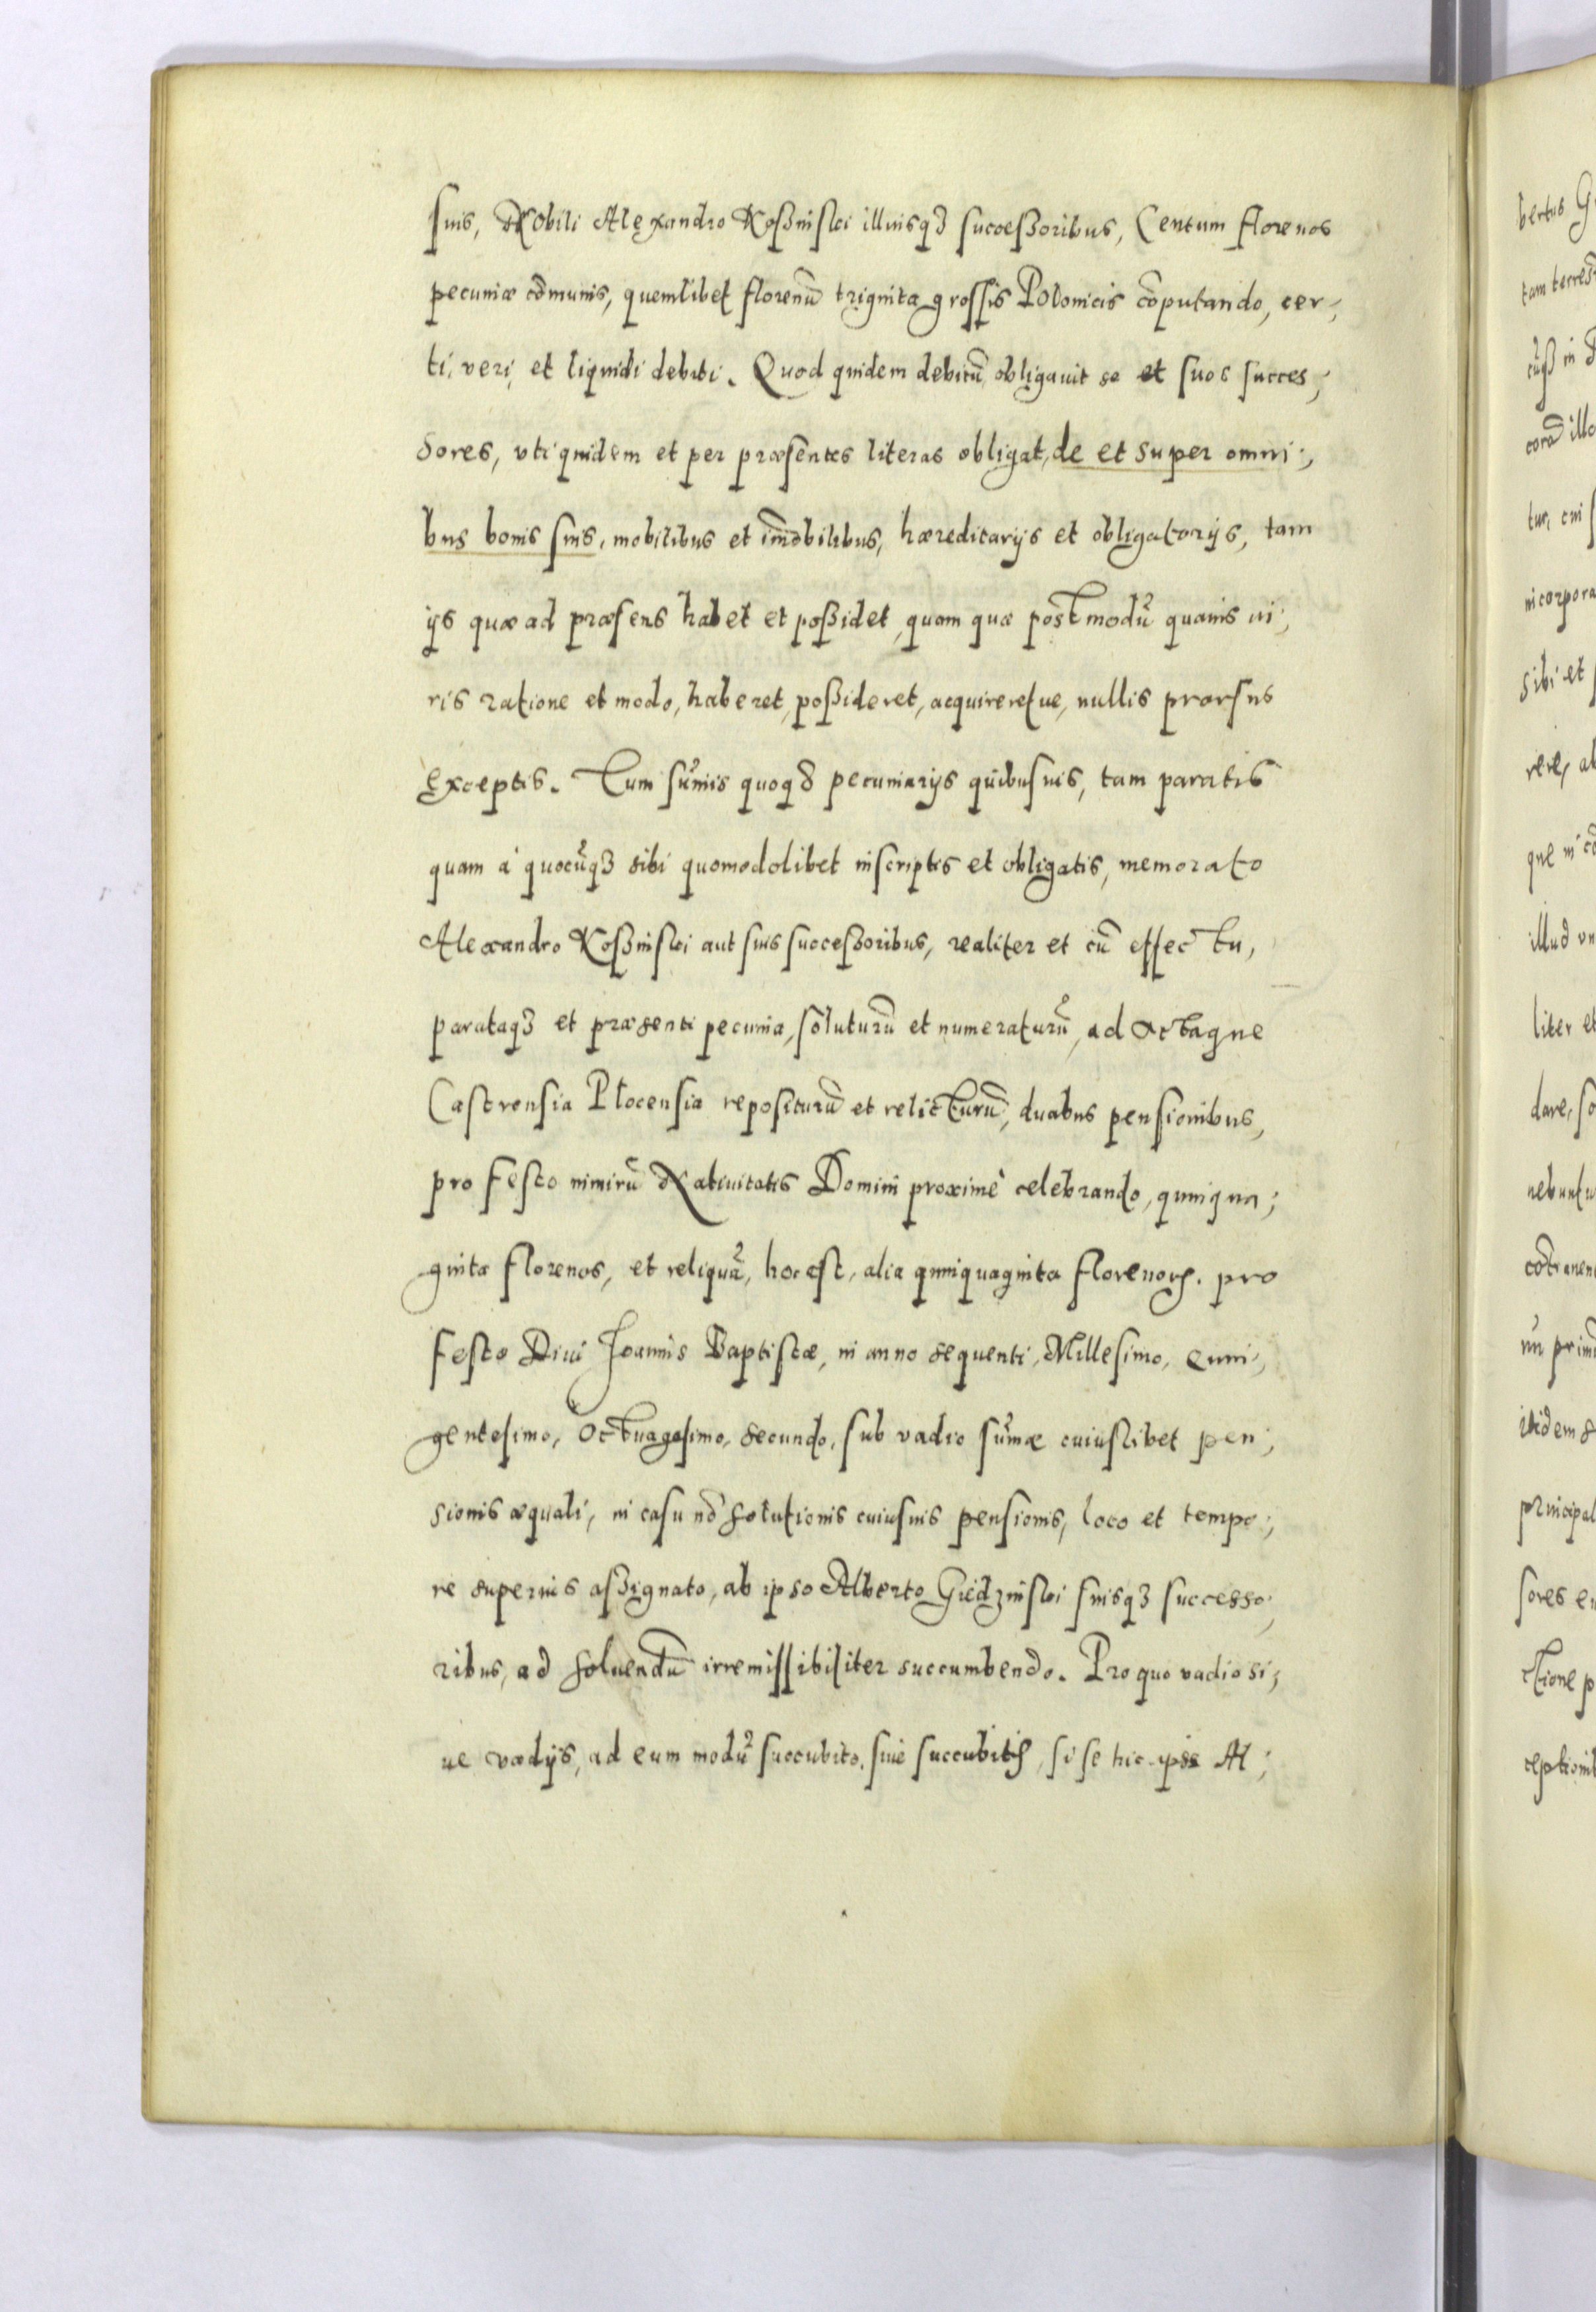 suis, Nobili Alexandro Koßinsķi illiusqȝ successoribus, Centum florenos
pecuniæ cõmunis, quemlibet florenũ triginta grossis Polonicis cõputando, cer-,
ti, veri, et liquidi debiti. Quod quidem debitũ obligauit se et suos succes,
sores, vti quidem et per præsentes literas obligat, de et super omni,
bus bonis suis, mobilibus et im̃obilibus, hæreditarijs et obligatorijs, tam
ijs quæ ad præsens habet et poßidet, quam quæ postmodũ quauis iu,
ris ratione et modo, haberet, poßideret, acquireretue, nullis prorsus
exceptis. Tum sum̃is quoqȝ pecuniarijs quibusuis, tam paratis
quam à quocũqȝ sibi quomodolibet inscriptis et obligatis, memorato
Alexandro Koßinski aut suis succeßoribus, realiter et cũ effectu,
parataqȝ et præsenti pecunia, soluturũ et numeraturũ, ad Actaque
Castrensia Plocensia repositurũ et relicturũ, duabus pensionibus,
pro festo nimirũ Natiuitatis Domini proximè celebrando, quinqua,
ginta florenos, et reliquã, hoc est, alia quinquaginta florenorꝝ. pro
festo Diui Joannis Baptistæ, in anno sequenti, Millesimo, quin,
gentesimo, Octuagesimo, secundo, sub vadio sum̃æ cuiuslibet pen,
sionis æquali, in casu nõ solutionis cuiusuis pensionis, loco et tempo,
re superius aßignato, ab ipso Alberto Giedzinski suisqȝ successo,
ribus, ad soluendũ irremissibiliter succumbendo. Pro quo vadio si,
ue vadijs, ad eum modũ succubito, siue succubitis, si se hic ipse Al,
bertus
tam
in
illo
tur, cui
incorpora
sibi et
rere, al
que in
illud
liter et
dare, so
nebuntu
primi
itidem s
principal
sores
ctione p
ceptionib